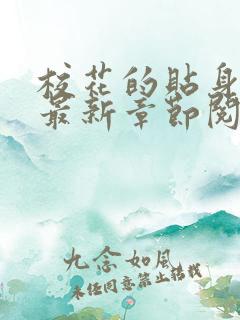 校花的贴身
最新章节阅
九念如风
未经同意禁止转载